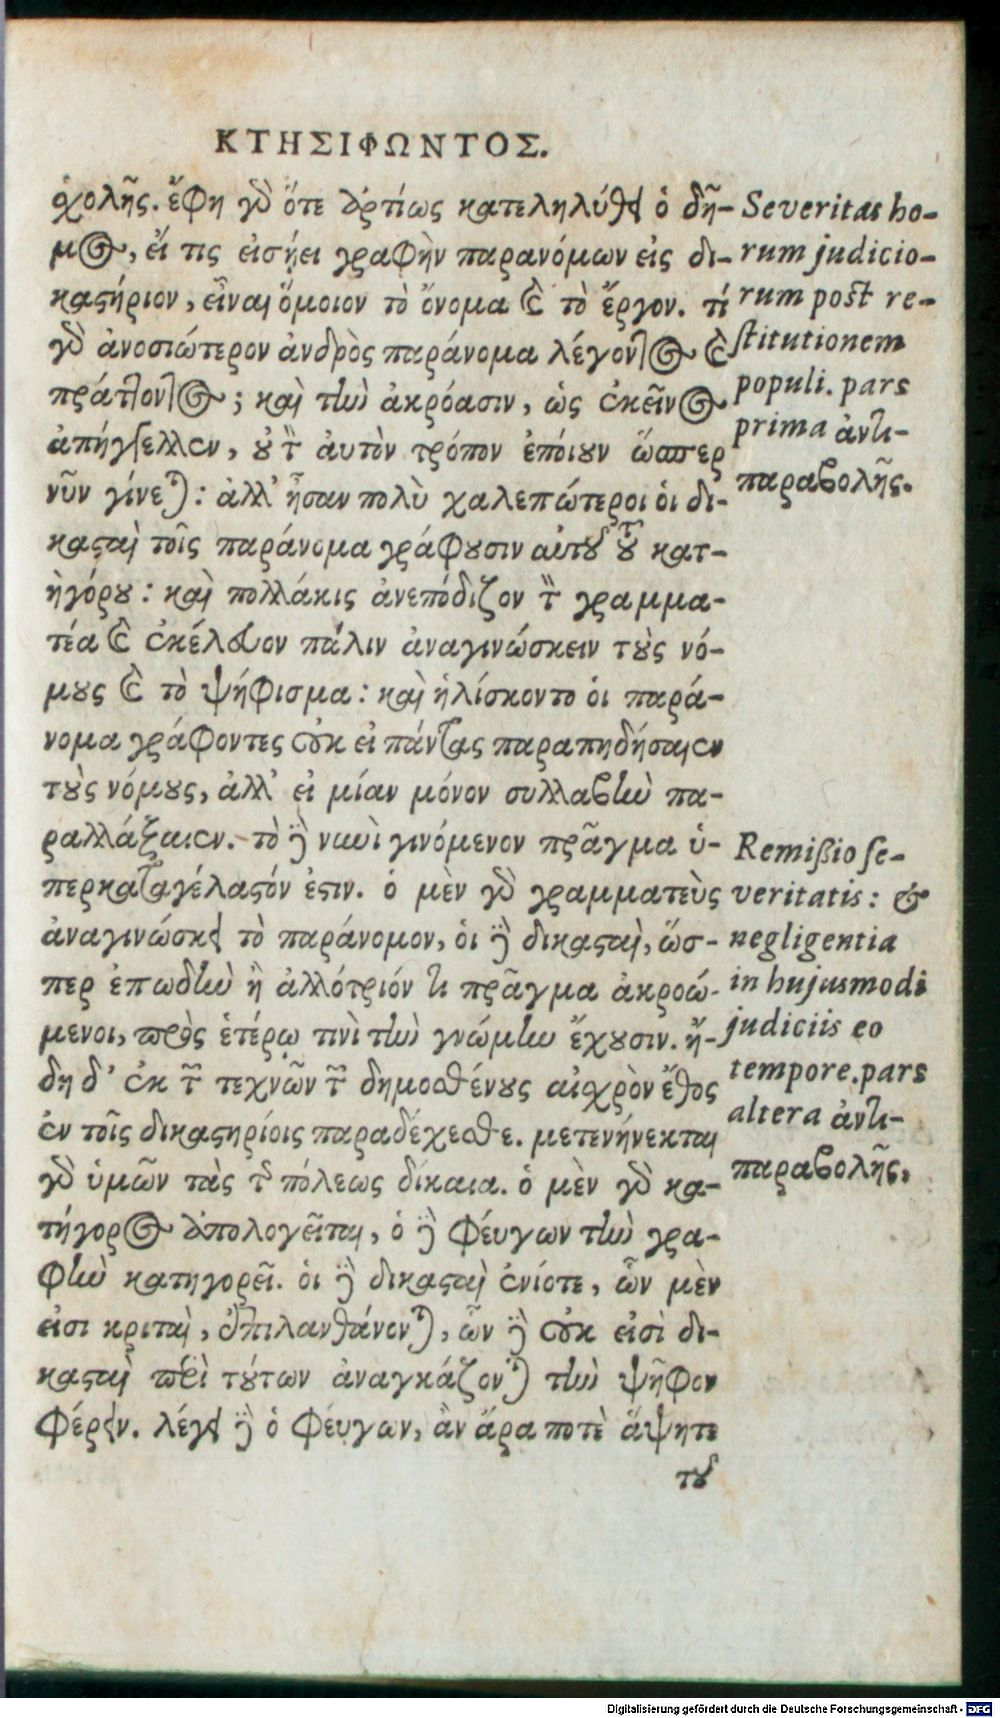 ΚΤΗΣΙΦΩΝΤΟΣ.
σχολῆς. ἔφη γὸ ὅτε ἀρτίως κατεληλύθει ὁ δῆ-
μος, εἴ τις εἰσῄει γραφὴν παρανόμων εἰς δι-
καστήριον, εἶναι ὅμοιον τὸ ὄνομα καὶ τὸ ἔργον. τί
γὸ ἀνοσιώτερον ἀνδρὸς παράνομα λέγοντος καὶ
πράττοντος; καὶ τὴν ἀκρόασιν, ὡς ἐκεῖνος
ἀπήγγελλεν, οὐ τὸν αὐτὸν τρόπον ἐποίουν ὥσπερ
νῦν γίνεται: ἀλλ' ἦσαν πολὺ χαλεπώτεροι οἱ δι-
κασταὶ τοῖς παράνομα γράφουσιν αὐτοῦ τοῦ κατ-
ηγόρου: καὶ πολλάκις ἀνεπόδιζον τὸν γραμμα-
τέα καὶ ἐκέλευον πάλιν ἀναγινώσκειν τοὺς νό-
μους καὶ τὸ ψήφισμα: καὶ ἡλίσκοντο οἱ παρά-
νομα γράφοντες οὐκ εἰ πάντας παραπηδήσαιεν
τοὺς νόμους, ἀλλ' εἰ μίαν μόνον συλλαβὴν πα-
ραλλάξαιεν. τὸ δὲ νυνὶ γινόμενον πρᾶγμα ὑ-
περκαταγέλαστόν ἐστιν. ὁ μὲν γὸ γραμματεὺς
ἀναγινώσκει τὸ παράνομον, οἱ δὲ δικασταὶ, ὥσ-
περ ἐπωδὴν ἢ ἀλλότριόν τι πρᾶγμα ἀκροώ-
μενοι, πρὸς ἑτέρῳ τινὶ τὴν γνώμην ἔχουσιν. ἤ-
δη δ' ἐκ τῶν τεχνῶν τῶν δημοσθένους αἰσχρὸν ἔθος
ἐν τοῖς δικαστηρίοις παραδέχεσθε. μετενήνεκται
γὸ ὑμῶν τὰς τῆς πόλεως δίκαια. ὁ μὲν γὸ κα-
τήγορος ἀπολογεῖται, ὁ δὲ φεύγων τὴν γρα-
φὴν κατηγορεῖ. οἱ δὲ δικασταὶ ἐνίοτε, ὧν μὲν
εἰσι κριταὶ, ἐπιλανθάνονται, ὧν δὲ οὐκ εἰσὶ δι-
κασταὶ περὶ τούτων ἀναγκάζονται τὴν ψῆφον
φέρειν. λέγει δὲ ὁ φεύγων, ἂν ἄρα ποτὲ ἅψητε
τοῦ
Severitas ho-
rum judicio-
rum post re-
stitutionem
populi. pars
prima ἀντι-
παραβολῆς.
Remißio se-
veritatis: &
negligentia
in hujusmodi
judiciis eo
tempore. pars
altera ἀντι-
παραβολῆς.
Digitalisierung gefördert durch die Deutsche Forschungsgemeinschaft - DFG